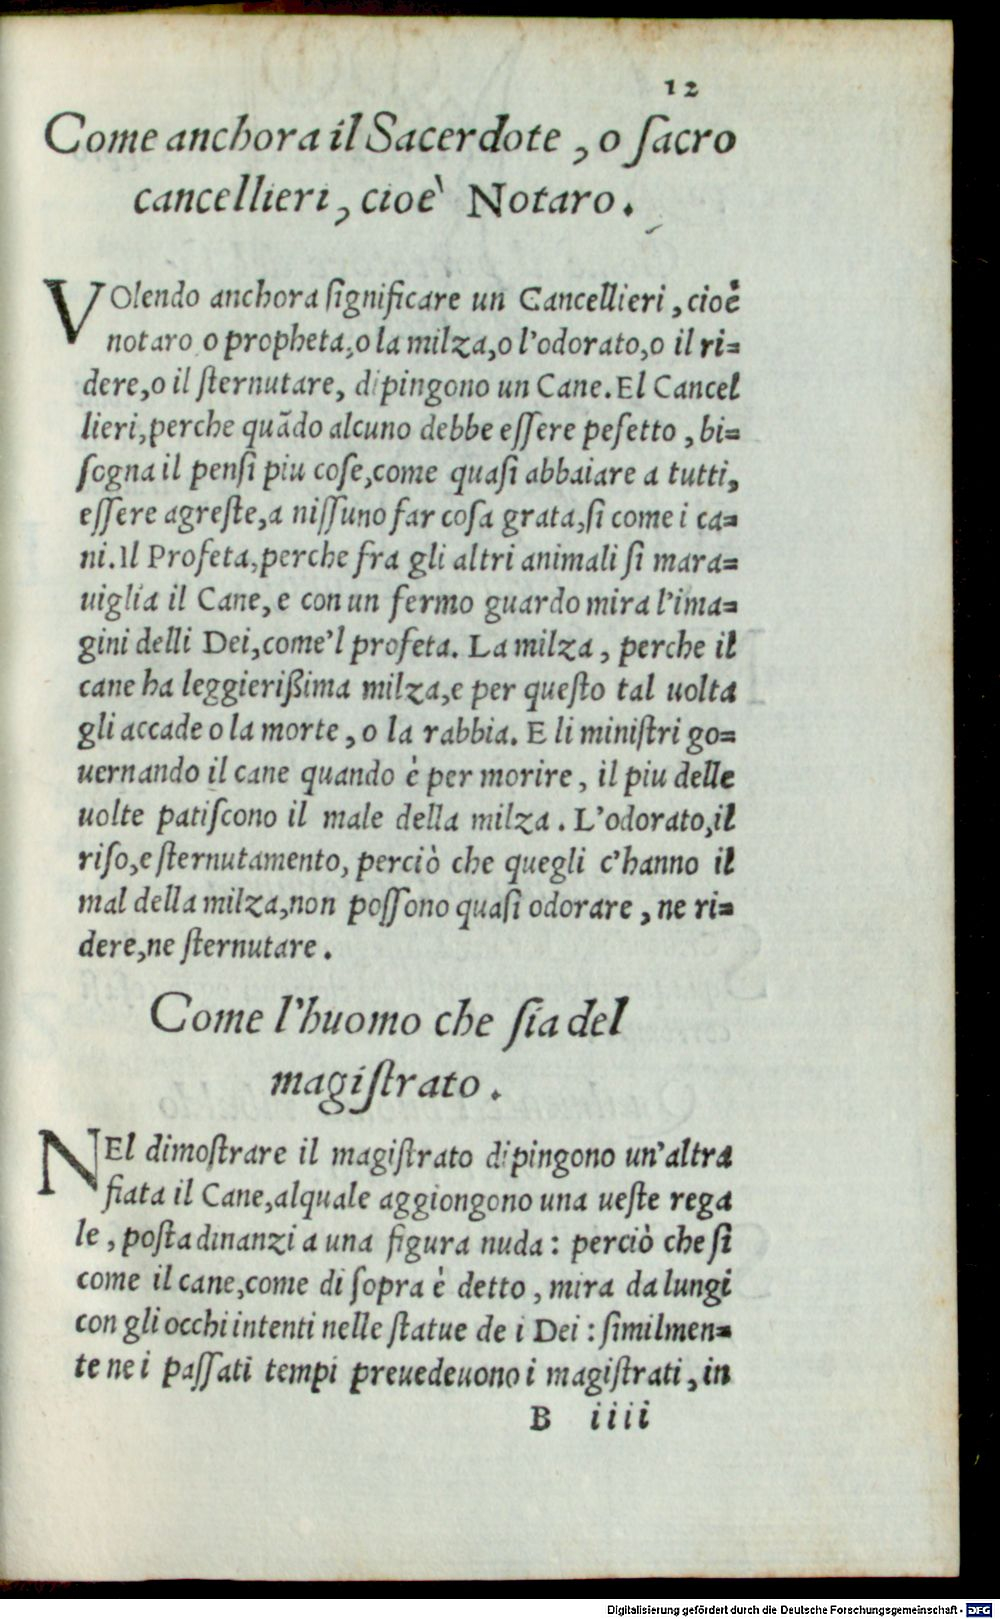 12
Come anchora il Sacerdote, o ſacro
cancellieri, cioè Notaro.
VOlendo anchora ſignificare un Cancellieri, cioè
notaro o propheta, o la milza, o l'odorato, o il ri=
dere, o il ſternutare, dipingono un Cane. El Cancel
lieri, perche quãdo alcuno debbe eſſere peſetto, bi=
ſogna il penſi piu coſe, come quaſi abbaiare a tutti,
eſſere agreſte, a niſſuno far coſa grata, ſi come i ca=
ni. Il Profeta, perche fra gli altri animali ſi mara=
uiglia il Cane, e con un fermo guardo mira l'ima=
gini delli Dei, come'l profeta. La milza, perche il
cane ha leggierißima milza, e per queſto tal uolta
gli accade o la morte, o la rabbia. E li miniſtri go=
uernando il cane quando è per morire, il piu delle
uolte patiſcono il male della milza. L'odorato, il
riſo, e ſternutamento, perciò che quegli c'hanno il
mal della milza, non poſſono quaſi odorare, ne ri=
dere, ne ſternutare.
Come l'huomo che ſia del
magiſtrato.
NEl dimoſtrare il magiſtrato dipingono un'altra
fiata il Cane, alquale aggiongono una ueſte rega
le, poſta dinanzi a una figura nuda: perciò che ſi
come il cane, come di ſopra è detto, mira da lungi
con gli occhi intenti nelle ſtatue de i Dei: ſimilmen=
te ne i paſſati tempi preuedeuono i magiſtrati, in
B iiii
Digitalisierung gefördert durch die Deutsche Forschungsgemeinschaft - DFG